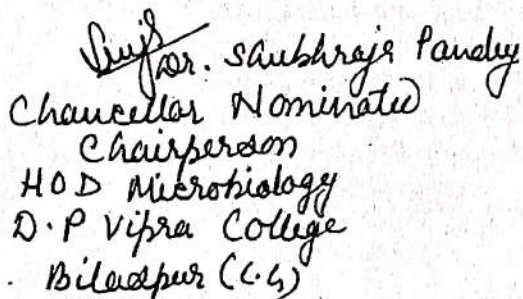 Dr. Shubhraje Pandey
Chancellor Nominated
Chairperson
HOD Microbiology
D.P Vipra College
Bilaspur (C.G)